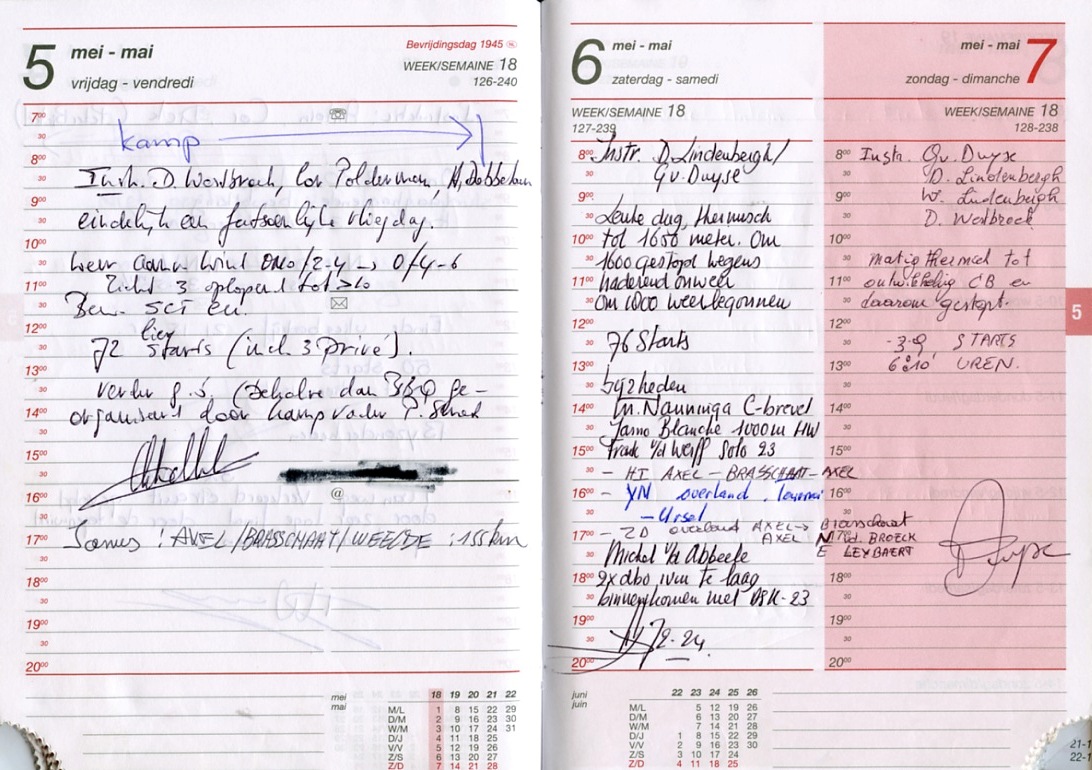 5
mei - mai
vrijdag - vendredi
Bevrijdingsdag 1945 NL
WEEK/SEMAINE 18
126-240
kamp
Instr. D. Worbroek, Cor Polderman,
eindelijk een fatsoenlijke vliegdag.
weer aan wind ONO/2-4 → O/4-6
Zicht 3 oplopend tot >10
Bew. SCT cu.
72 lier starts (incl. 3 privé).
verder g.b. (behalve dan BBQ ge-
organiseerd door kampvader P.
Janus : AXEL/BRASSCHAAT/WEELDE : 155 km
7⁰⁰
30
8⁰⁰
30
9⁰⁰
30
10⁰⁰
30
11⁰⁰
30
12⁰⁰
30
13⁰⁰
30
14⁰⁰
30
15⁰⁰
30
16⁰⁰
30
17⁰⁰
30
18⁰⁰
30
19⁰⁰
30
20⁰⁰
mei
mai
18 19 20 21 22
M/L 1 8 15 22 29
D/M 2 9 16 23 30
W/M 3 10 17 24 31
D/J 4 11 18 25
V/V 5 12 19 26
Z/S 6 13 20 27
Z/D 7 14 21 28
6
mei - mai
zaterdag - samedi
WEEK/SEMAINE 18
127-239
Instr. D. Lindenbergh/
G v. Duyse
Leuke dag, thermisch
tot 1650 meter. Om
1600 gestopt wegens
naderend onweer
om 1000 weer begonnen
76 Starts
bijzheden
Nanninga C-brevet
Jarno Blanche 1000m HW
Frank v/d Werff Solo 23
- HI AXEL - BRASSCHAAT - AXEL
- YN overland
- Ursel
- ZD overland AXEL → Brasschaat
AXEL N v.d. BROECK
E LEYBAERT
Michel v/d Abbeele
2x dbo ivm te laag
binnenkomen met ASK-23
8⁰⁰
30
9⁰⁰
30
10⁰⁰
30
11⁰⁰
30
12⁰⁰
30
13⁰⁰
30
14⁰⁰
30
15⁰⁰
30
16⁰⁰
30
17⁰⁰
30
18⁰⁰
30
19⁰⁰
30
20⁰⁰
juni
juin
22 23 24 25 26
M/L 5 12 19 26
D/M 6 13 20 27
W/M 7 14 21 28
D/J 1 8 15 22 29
V/V 2 9 16 23 30
Z/S 3 10 17 24
Z/D 4 11 18 25
mei - mai
7
zondag - dimanche
WEEK/SEMAINE 18
128-238
Instr. G v. Duyse
D. Lindenbergh
W. Lindenbergh
D. Worbroek
matig thermiek tot
ontwikkeling CB en
daarom gestopt.
- 39 STARTS
6:10' UREN.
8⁰⁰
30
9⁰⁰
30
10⁰⁰
30
11⁰⁰
30
12⁰⁰
30
13⁰⁰
30
14⁰⁰
30
15⁰⁰
30
16⁰⁰
30
17⁰⁰
30
18⁰⁰
30
19⁰⁰
30
20⁰⁰
5